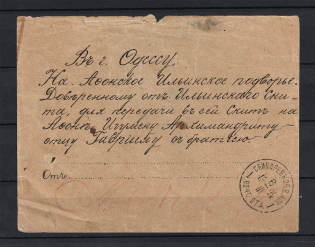 Въ г. Одессу.
На Аѳонское Ильинское подворье.
Довѣренному отъ Ильинскаго Ски-
та, для передачи въ сей Скитъ на
Аѳонъ Игумену Архимандриту
отцу Гавріилу съ братіею.
Отъ